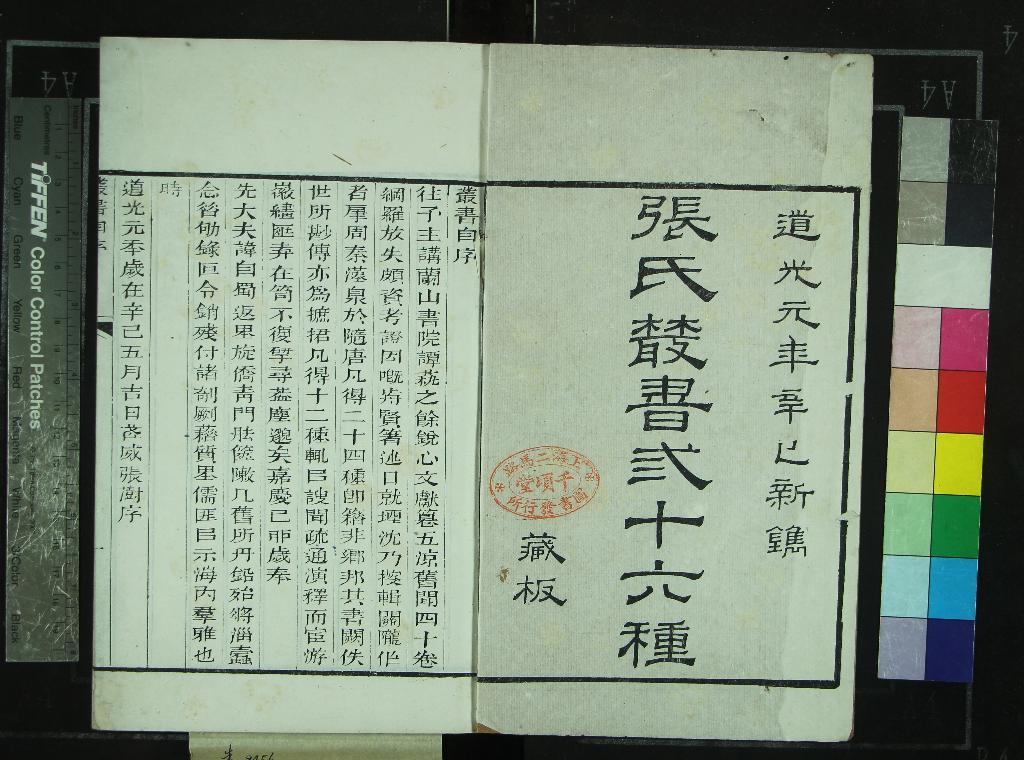 道光元年辛巳新鐫
張氏叢書弍十六種
藏板
上海二馬路
千頃堂
圖書發行所
叢書自序
往予主講蘭山書院譚蓺之餘銳心文獻篹五涼舊聞四十卷
綱羅放失頗資考證因嘅歬賢箸述日就堙沈乃搜輯關隴作
者肇周秦漢泉於隨唐凡得二十四種卽籍非鄉邦其書闕佚
世所尠傳亦爲摭捃凡得十二種輒㠯謏聞疏通演釋而宦游
嚴繣匧弆在笥不復擘尋葢塵邈矣嘉慶己卯歲奉
先大夫諱自蜀返果旋僑靑門胠篋敶几舊所丹鉛殆將淄蠹
念昝劬錄叵令銷殘付諸剞劂藉質里儒匪㠯示海內羣雅也
時
道光元秊歲在辛巳五月吉日武威張澍序
叢書自序
一
TIFFEN Color Control Patches
Centimetres
Inches
Blue
Cyan
Green
Yellow
Red
Magenta
White
3/Color
Black
A4
A4
4